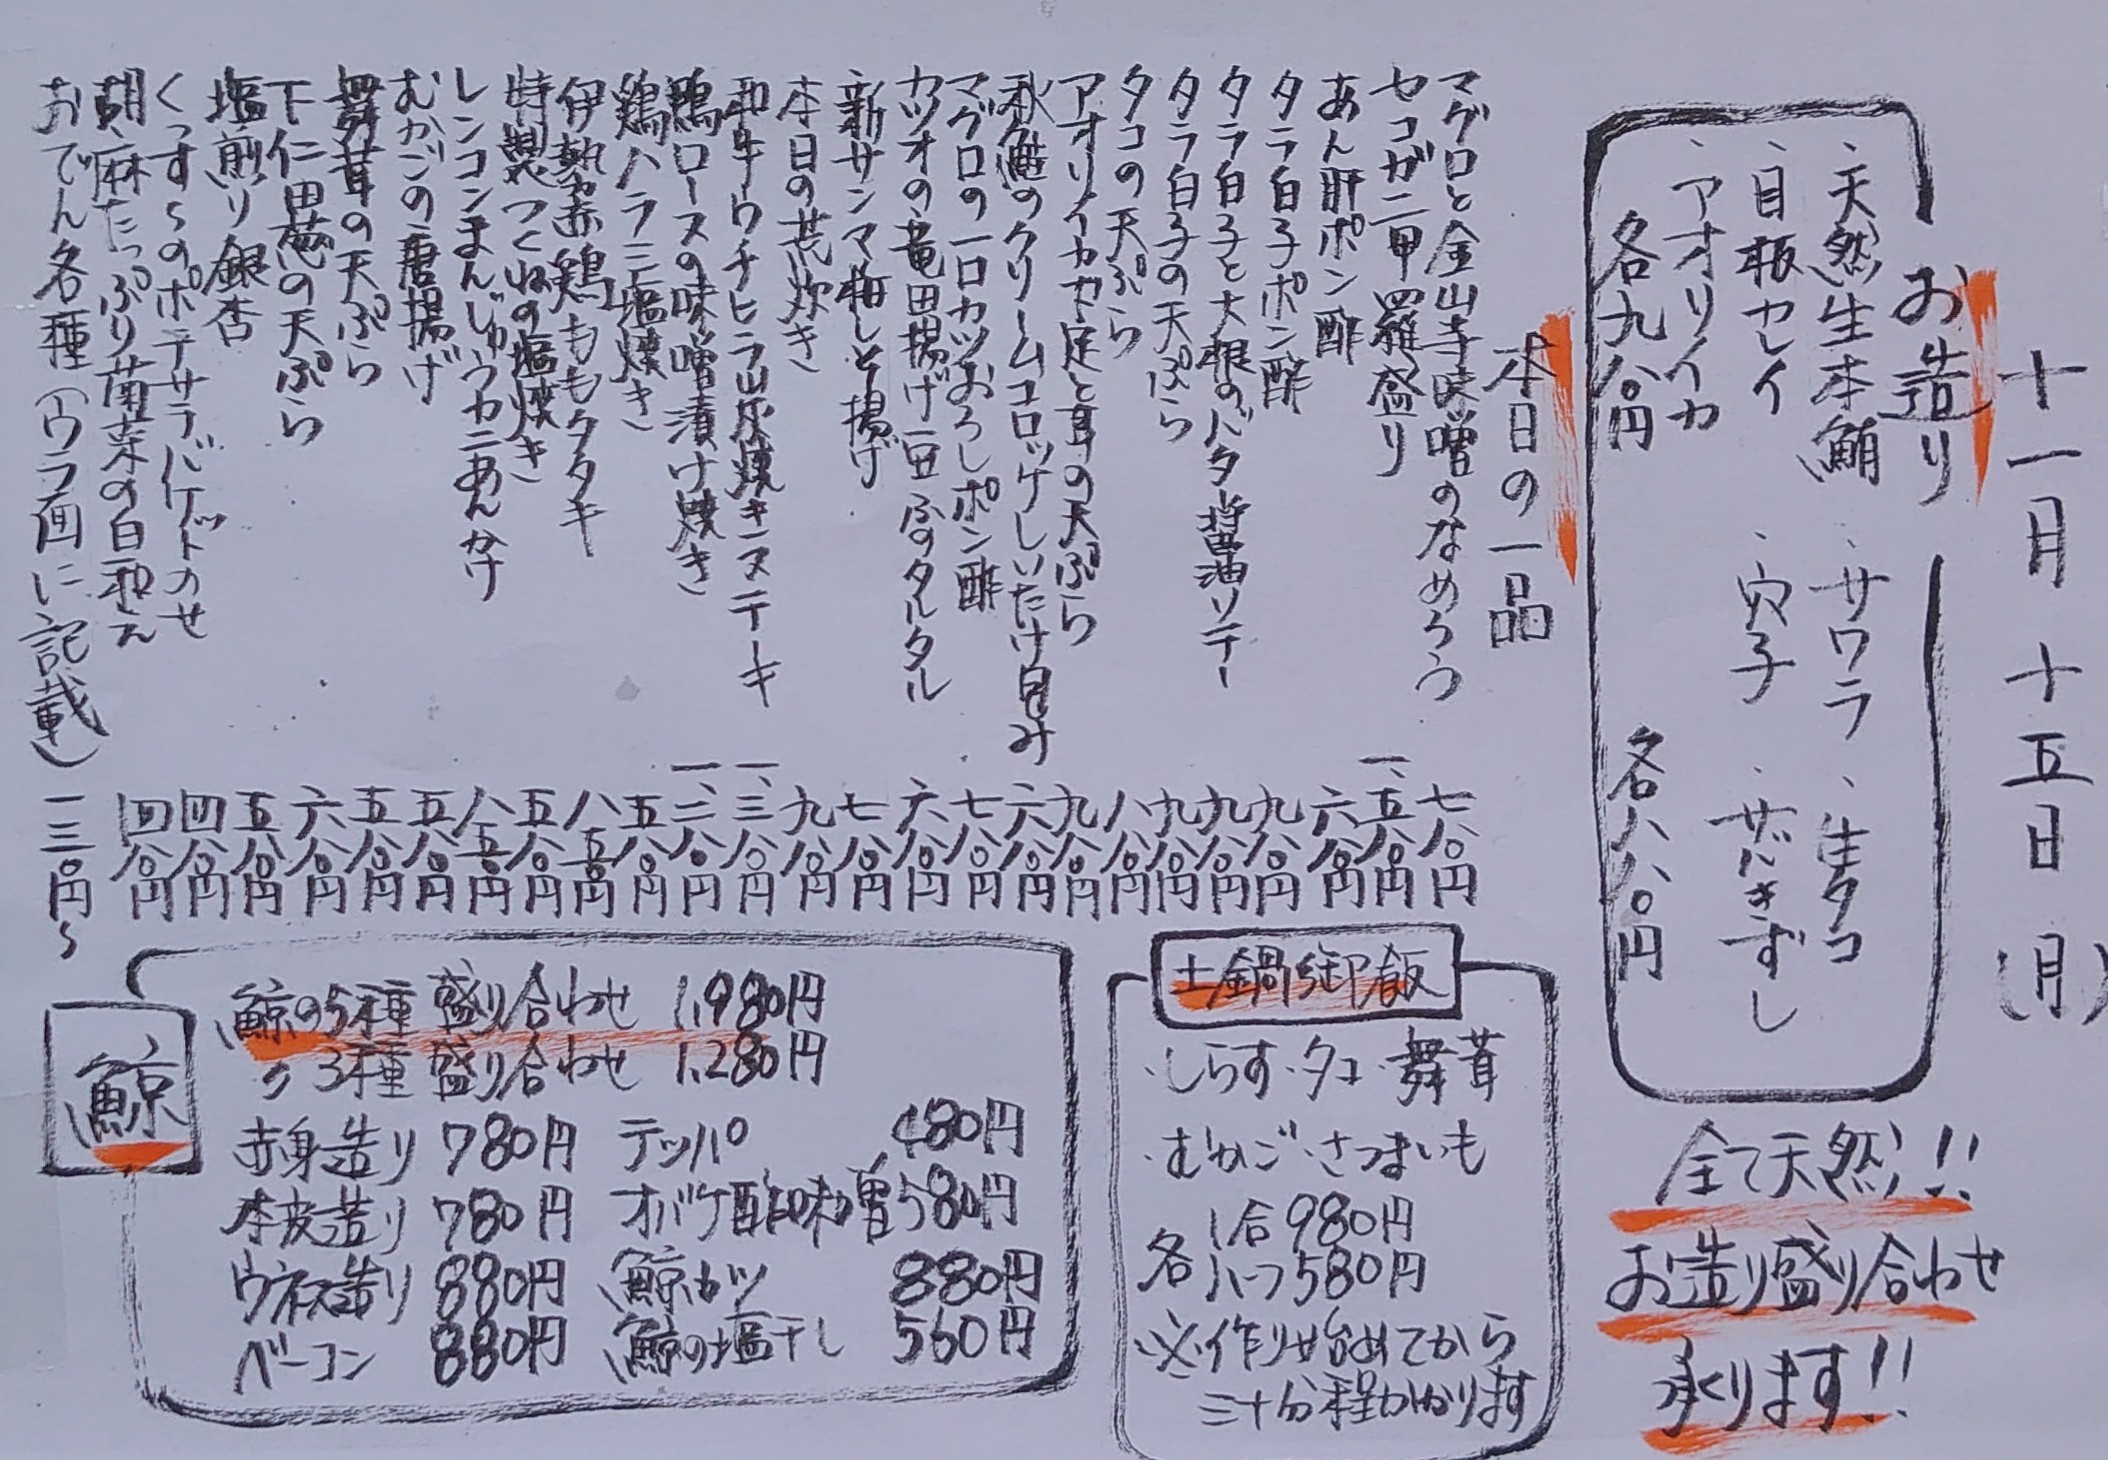 十一月十五日(月)
お造り
・天然生本鮪 ・サワラ ・生タコ
・目板カレイ ・穴子 ・サバきずし
・アオリイカ
各九八〇円 各八八〇円
全て天然!!
お造り盛り合わせ
承ります!!
本日の一品
マグロと金山寺味噌のなめろう 七八〇円
セコガニ甲羅盛り 一、五八〇円
あん肝ポン酢 六八〇円
タラ白子ポン酢 九八〇円
タラ白子と大根のバタ醤油ソテー 九八〇円
タラ白子の天ぷら 九八〇円
タコの天ぷら 八八〇円
アオリイカ足と耳の天ぷら 九八〇円
秋鮭のクリームコロッケしいたけ包み 六八〇円
マグロの一口カツおろしポン酢 七八〇円
カツオの竜田揚げ豆ふのタルタル 六八〇円
新サンマ梅しそ揚げ 七八〇円
本日の荒炊き 九八〇円
和牛ウチヒラ山灰焼きステーキ 一、三八〇円
鴨ロースの味噌漬け焼き 一、二八〇円
鶏ハラミ塩焼き 五八〇円
伊勢赤鶏ももタタキ 八五〇円
特製つくねの塩焼き 五八〇円
レンコンまんじゅうカニあんかけ 八五〇円
むかごの唐揚げ 五八〇円
舞茸の天ぷら 五八〇円
下仁田葱の天ぷら 六八〇円
塩煎り銀杏 五八〇円
くっすぅのポテサラバゲットのせ 四八〇円
胡麻たっぷり菊菜の白和え 四八〇円
おでん各種(ウラ面に記載) 一三〇円〜
土鍋御飯
・しらす・タコ・舞茸
・むかご・さつまいも
各 1合980円
ハーフ580円
※作り始めてから
三十分程かかります
鯨
鯨の5種盛り合わせ 1,980円
〃 3種盛り合わせ 1,280円
赤身造り 780円 テッパ 480円
本皮造り 780円 オバケ酢味噌 580円
ウネス造り 880円 鯨カツ 880円
ベーコン 880円 鯨の塩干し 560円